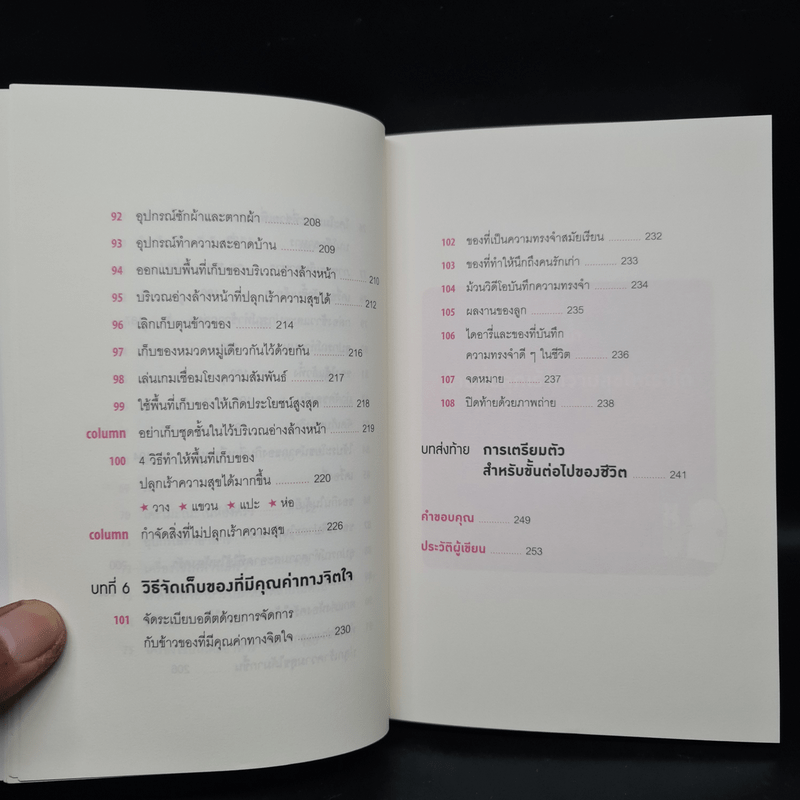 92 อุปกรณ์ซักผ้าและตากผ้า ............ 208
93 อุปกรณ์ทำความสะอาดบ้าน ............ 209
94 ออกแบบพื้นที่เก็บของบริเวณอ่างล้างหน้า ............ 210
95 บริเวณอ่างล้างหน้าที่ปลุกเร้าความสุขได้ ............ 212
96 เลิกเก็บตุนข้าวของ ............ 214
97 เก็บของหมวดหมู่เดียวกันไว้ด้วยกัน ............ 216
98 เล่นเกมเชื่อมโยงความสัมพันธ์ ............ 217
99 ใช้พื้นที่เก็บของให้เกิดประโยชน์สูงสุด ............ 218
column อย่าเก็บชุดชั้นในไว้บริเวณอ่างล้างหน้า ............ 219
100 4 วิธีทำให้พื้นที่เก็บของ
ปลุกเร้าความสุขได้มากขึ้น ............ 220
★ วาง ★ แขวน ★ แปะ ★ ห่อ
column กำจัดสิ่งที่ไม่ปลุกเร้าความสุข ............ 226
บทที่ 6 วิธีจัดเก็บของที่มีคุณค่าทางจิตใจ
101 จัดระเบียบอดีตด้วยการจัดการ
กับข้าวของที่มีคุณค่าทางจิตใจ ............ 230
102 ของที่เป็นความทรงจำสมัยเรียน ............ 232
103 ของที่ทำให้นึกถึงคนรักเก่า ............ 233
104 ม้วนวิดีโอบันทึกความทรงจำ ............ 234
105 ผลงานของลูก ............ 235
106 ไดอารี่และของที่บันทึก
ความทรงจำดี ๆ ในชีวิต ............ 236
107 จดหมาย ............ 237
108 ปิดท้ายด้วยภาพถ่าย ............ 238
บทส่งท้าย การเตรียมตัว
สำหรับขั้นต่อไปของชีวิต ............ 241
คำขอบคุณ ............ 249
ประวัติผู้เขียน ............ 253